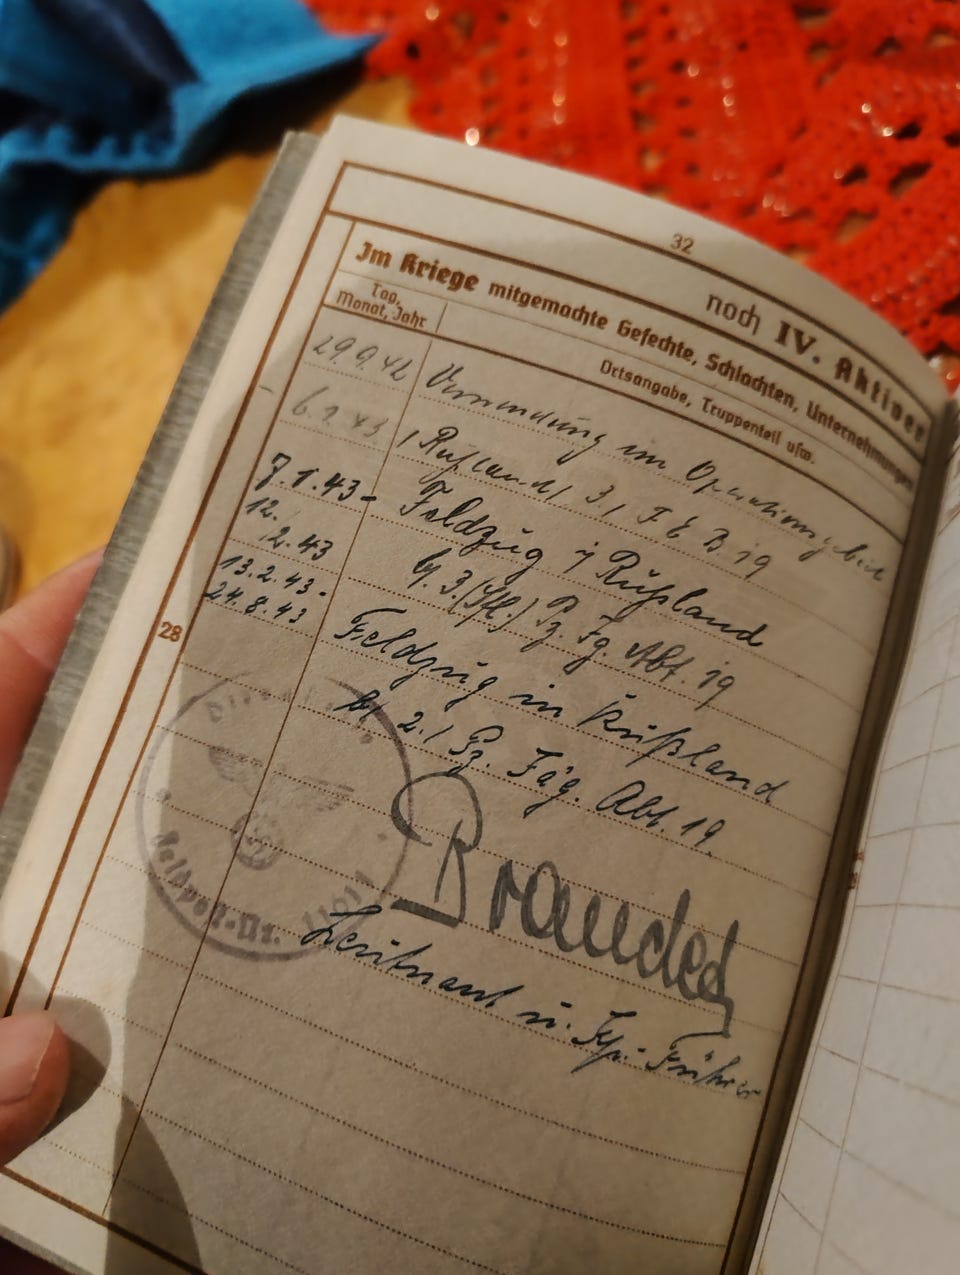 32
noch IV. Aktiver
Im Kriege mitgemachte Gefechte, Schlachten, Unternehmungen
Tag, Monat, Jahr
Ortsangabe, Truppenteil usw.
29.9.42 Verwendung im Operationsgebiet
6. 43 Rußland, 3./ F E B 19
7.1.43- Feldzug i Rußland
12.
2.43 b/ 3.(Sfl.) Pz. Jg. Abt 19
13.2.43- Feldzug in Rußland
24.8.43
b/ 2./ Pz. Jäg. Abt. 19.
28
Feldpost-Nr.
Leutnant u. Kp.-Führer